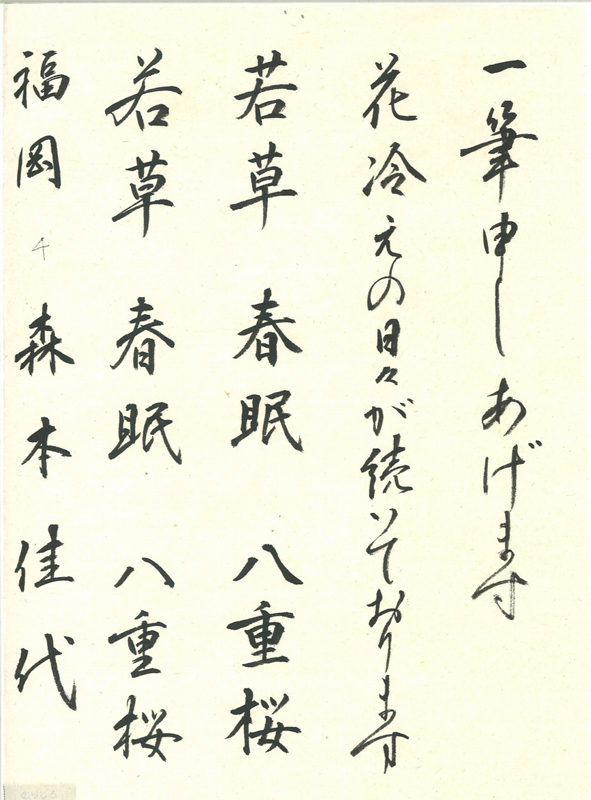 一筆申しあげます
花冷えの日々が続いております
若草 春眠 八重桜
若草 春眠 八重桜
福岡 4 森本佳代